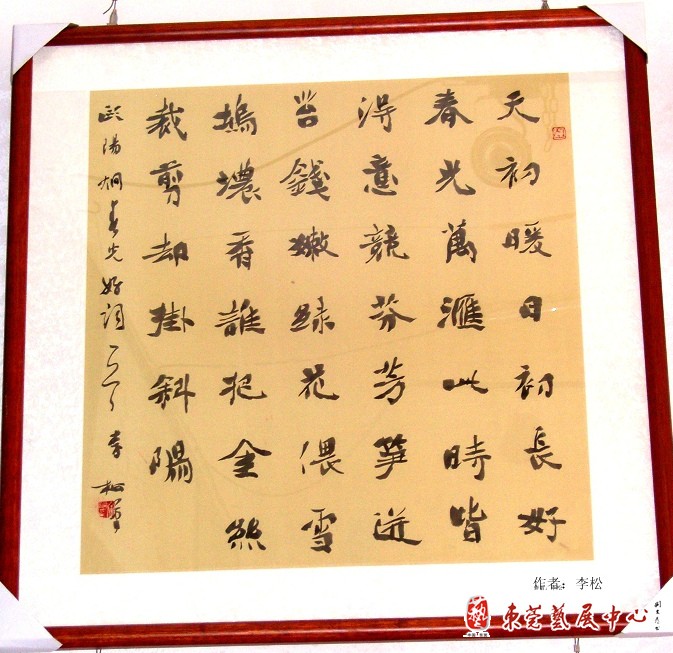 天初暖日初長好
春光萬滙此時皆
得意競芬芳笋迸
苔錢嫩緑花偎雪
塢濃香誰把金絲
裁剪却掛斜陽
歐陽炯春光好詞一首 李松
作者：李松
東莞藝展中心